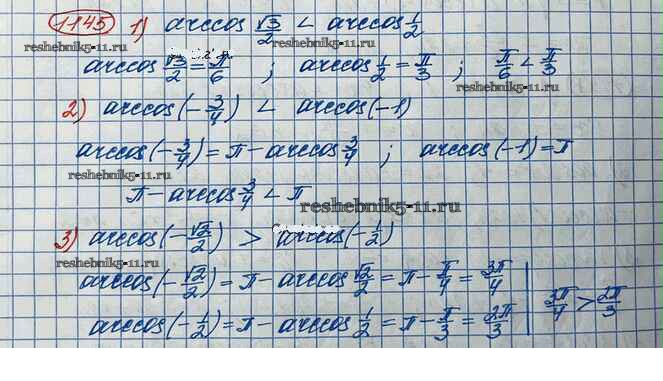 1145 1) arccos √3/2 < arccos 1/2
reshebnik5-11.ru
arccos √3/2 = π/6 ; arccos 1/2 = π/3 ; π/6 < π/3
reshebnik5-11.ru
2) arccos(-3/4) < arccos(-1)
arccos(-3/4) = π - arccos 3/4 ; arccos(-1) = π
reshebnik5-11.ru
π - arccos 3/4 < π
reshebnik5-11.ru
3) arccos(-√2/2) > arccos(-1/2)
reshebnik5-11.ru
arccos(-√2/2) = π - arccos √2/2 = π - π/4 = 3π/4
arccos(-1/2) = π - arccos 1/2 = π - π/3 = 2π/3 | 3π/4 > 2π/3
reshebnik5-11.ru